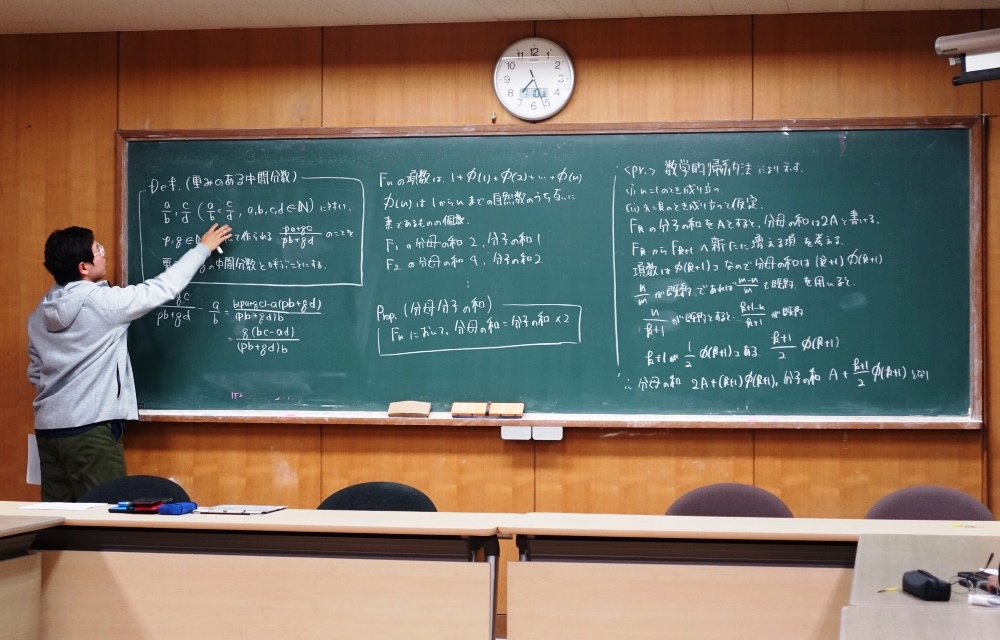 Def.(重みのある中間分数)
a/b, c/d (a/b < c/d, a,b,c,d∈N) に対し,
p,q∈N て作られる (pa+qc)/(pb+qd) のことを
の中間分数とよぶことにする.
qc/(pb+qd) - a/b = (b(pa+qc)-a(pb+qd))/((pb+qd)b)
= q(bc-ad)/((pb+qd)b)
Fnの項数は, 1+φ(1)+φ(2)+…+φ(n)
φ(n)は1からnまでの自然数のうち互いに
素であるものの個数.
F1の分母の和 2, 分子の和 1
F2の分母の和 4, 分子の和 2
⋮
Prop. (分母分子の和)
Fnにおいて, 分母の和=分子の和×2
<pr.> 数学的帰納法により示す.
(i) n=1のとき成り立つ.
(ii) n=kのとき成り立つと仮定.
Fkの分子の和をAとすると, 分母の和は2Aと書ける.
FkからFk+1へ新たに増える項を考える.
項数はφ(k+1)コなので分母の和は(k+1)φ(k+1)
n/m が既約であれば (m-n)/m も既約 を用いると.
n/(k+1) が既約とすると (k+1-n)/(k+1) が既約
k+1が 1/2 φ(k+1)コある. (k+1)/2 φ(k+1)
∴ 分母の和 2A+(k+1)φ(k+1), 分子の和 A+(k+1)/2 φ(k+1) となり
11 12 1
10 2
9 3
8 4
7 6 5